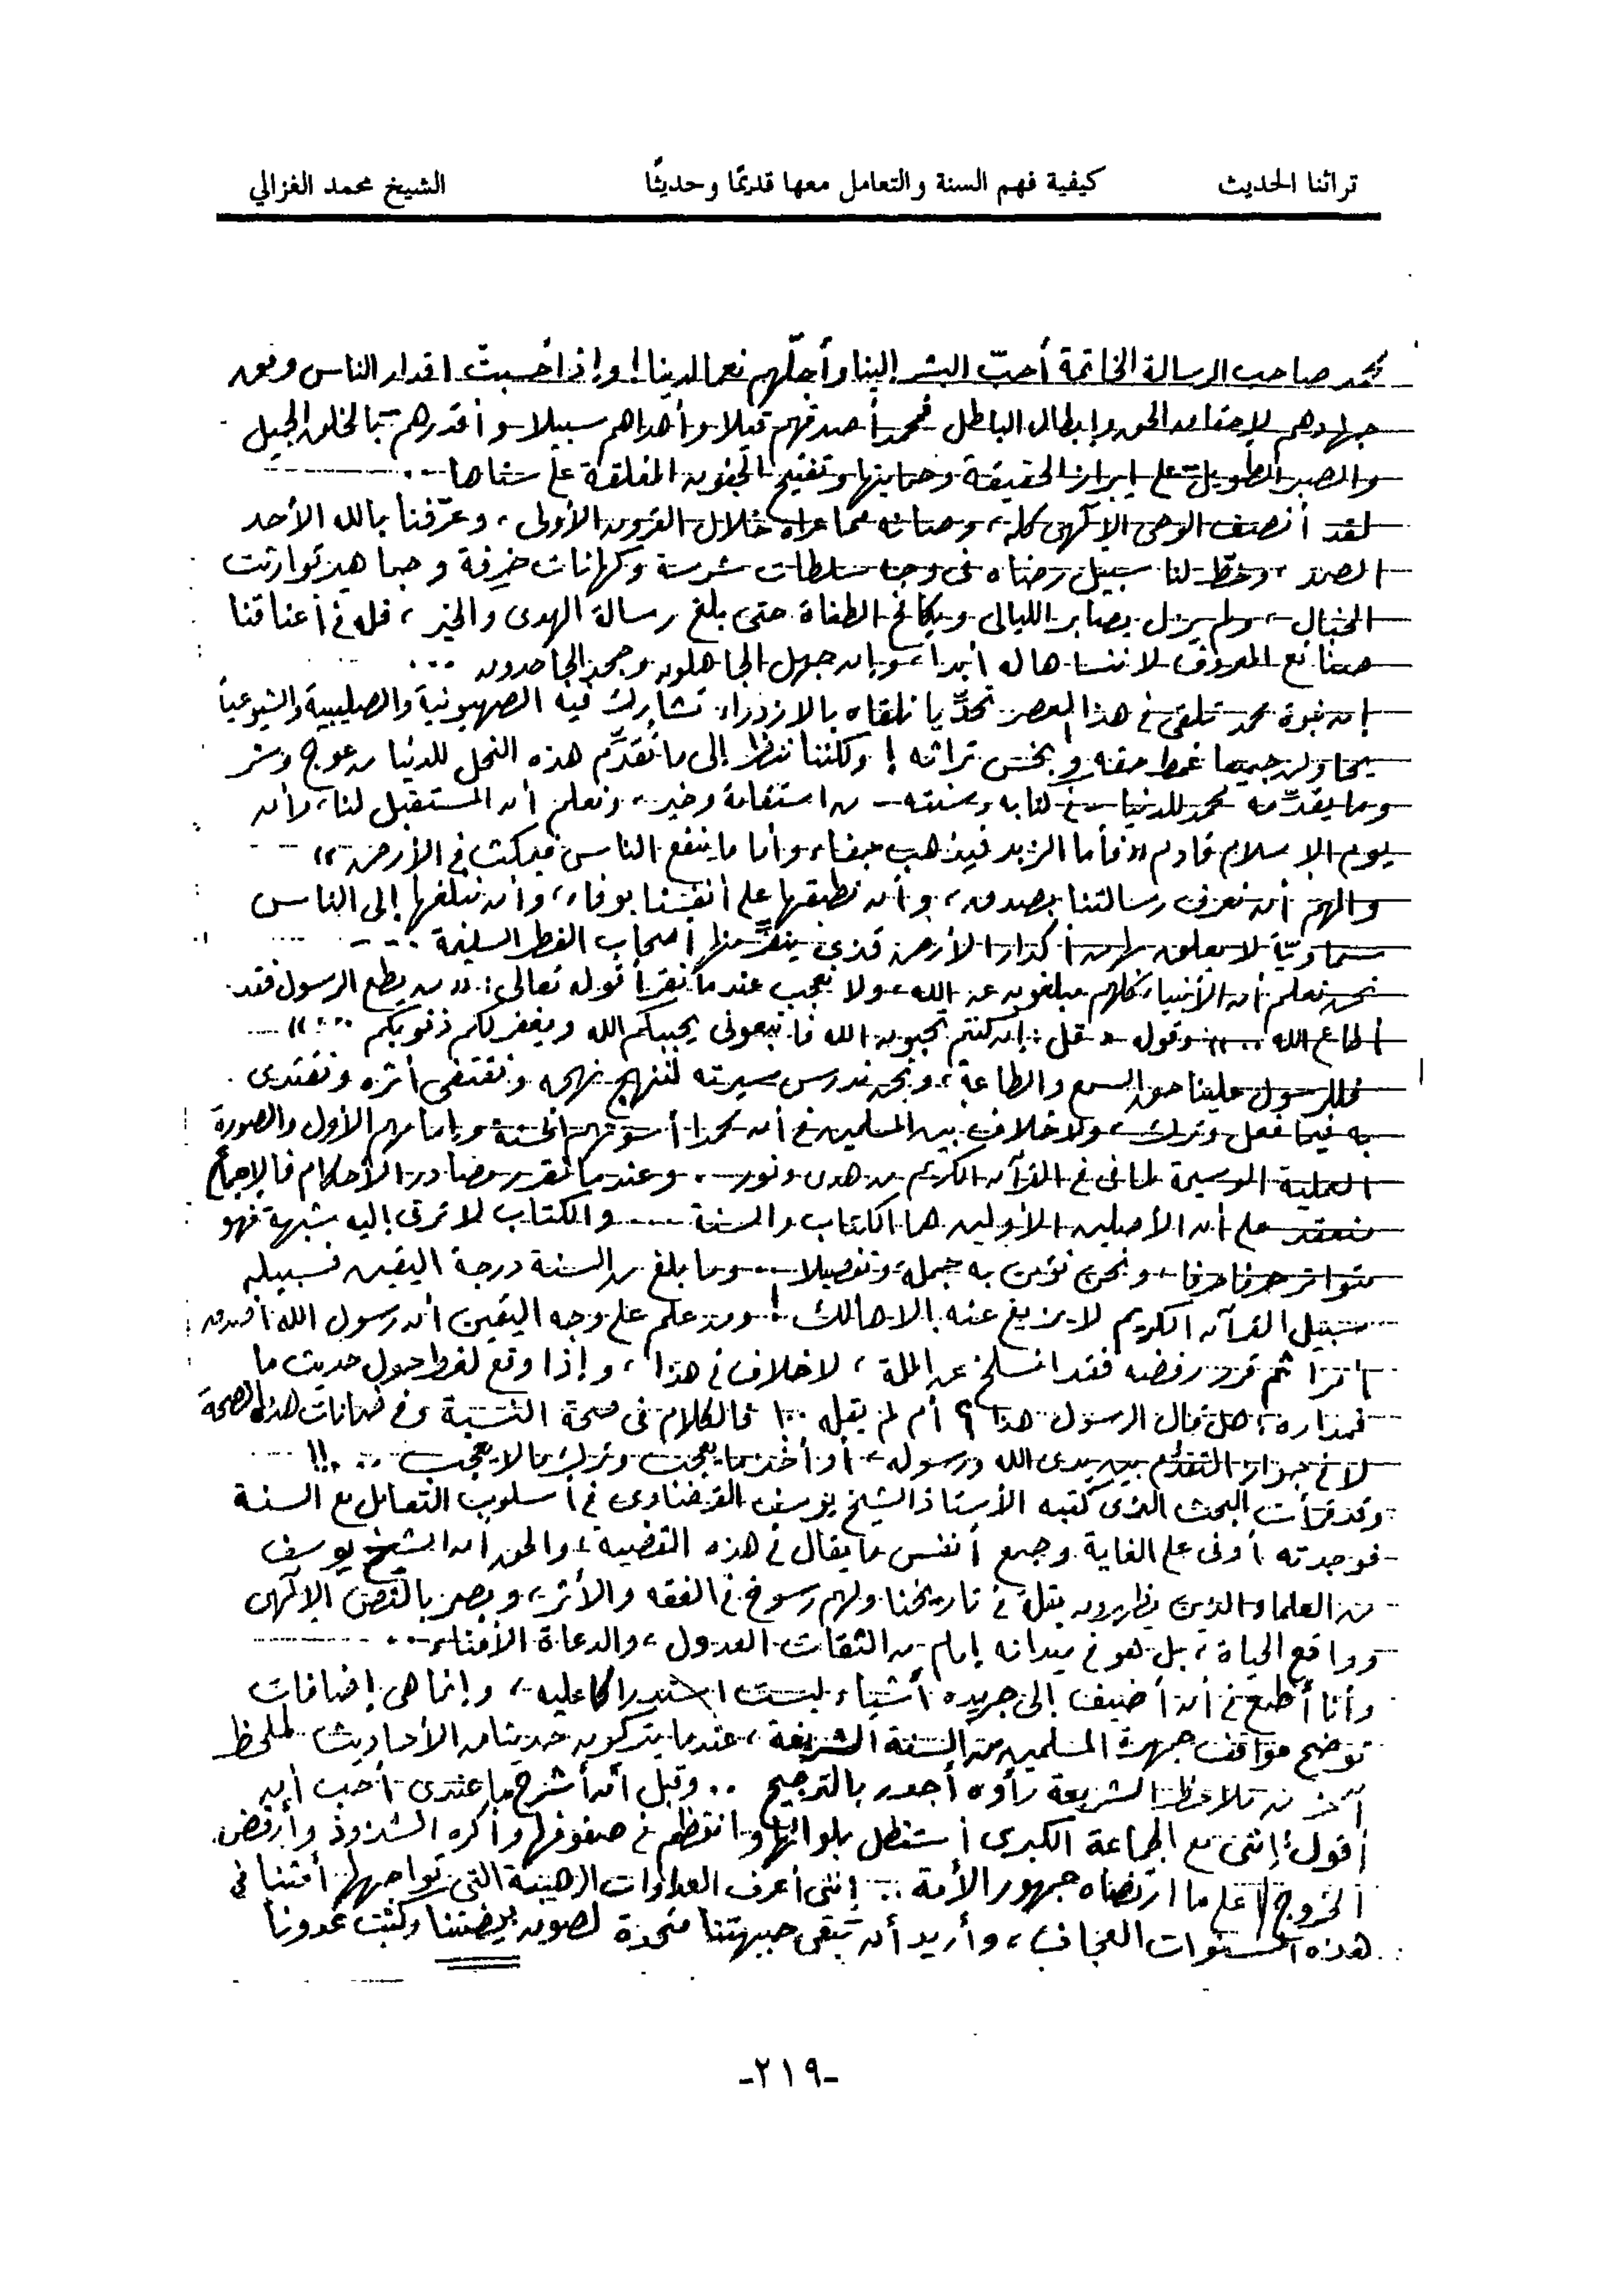 تراثنا الحديث كيفية فهم السنة والتعامل معها قديمًا وحديثًا الشيخ محمد الغزالي
محمد صاحب الرسالة الخاتمة أحبّ البشر إلينا وأجلّهم نعما لدينا! وإذا حُسبتْ اقدار الناس وفق
جهادهم لإحقاق الحق وإبطال الباطل فمحمد أصدقهم قيلا وأهداهم سبيلا وأقدرهم بالخلق الجميل
والصبر الطويل على إبراز الحقيقة وحمايتها وتفتيح الجفون المغلقة على سناها ..
لقد أنصف الوحى الإلهى كله، وصانه مما عراه خلال القرون الأولى، وعرّفنا بالله الأحد
الصمد، وخطّ لنا سبيل رضاه فى وجه سلطات شرسة وكهانات خرفة وجماهير توارثت
الخبال، ولم يزل يصابر الليالى ويكافح الطغاة حتى بلغ رسالة الهدى والخير، فله فى أعناقنا
صنائع المعروف لا ننساها له أبدا، وإن جهل الجاهلون وجحد الجاحدون ...
إن نبوة محمد تلقى فى هذا العصر تحدّيا نلقاه بالازدراء تشارك فيه الصهيونية والصليبية والشيوعية
يحاولن جميعا غمط حقه وبخس تراثه! ولكننا ننظر إلى ما تقدِّم هذه النحل للدنيا من عوج وشر
وما يقدّمه محمد للدنيا - فى كتابه وسنته - من استقامة وخير، ونعلم أن المستقبل لنا، وأن
يوم الإسلام قادم «فأما الزبد فيذهب جفاء وأما ما ينفع الناس فيمكث فى الأرض»
والمهم أن نعرف رسالتنا بصدق، وأن نطبقها على أنفسنا بوفاء، وأن نبلغها إلى الناس
سماويّة لا يعلق بها من أكدار الأرض قذى ينفّر منها أصحاب الفطر السليمة ...
نحن نعلم أن الأنبياء كلهم مبلغون عن الله، ولا نعجب عندما نقرأ قوله تعالى: «من يطع الرسول فقد
أطاع الله ..» وقوله «قل: إن كنتم تحبون الله فاتبعونى يحببكم الله ويغفر لكم ذنوبكم ...»
فللرسول علينا حق السمع والطاعة، ونحن ندرس سيرته لننهج نهجه ونقتفى أثره ونقتدى
به فيما فعل وترك، ولا خلاف بين المسلمين فى أن محمدا أسوتهم الحسنة وإمامهم الأول والصورة
العملية الوسيمة لما فى القرآن الكريم من هدى ونور .. وعندما تقرر مصادر الأحكام فالإجماع
منعقد على أن الأصلين الأولين هما الكتاب والسنة .... والكتاب لا ترقى إليه شبهة فهو
متواتر حرفا حرفا، ونحن نؤمن به جملة وتفصيلا .. وما بلغ من السنة درجة اليقين فسبيله
سبيل القرآن الكريم لا يزيغ عنه إلا هالك! ومن علم على وجه اليقين أن رسول الله أصدر
أمرا ثم قرر رفضه فقد انسلخ عن الملة، لا خلاف فى هذا، وإذا وقع لغط حول حديث ما
فمداره: هل قال الرسول هذا؟ أم لم يقله ..! فالكلام فى صحة النسبة وفى ضمانات هذه الصحة
لا فى جواز التقدُّم بين يدى الله ورسوله، أو أخذ ما يعجب وترك ما لا يعجب ..!!
وقد قرأت البحث الذى كتبه الأستاذ الشيخ يوسف القرضاوى فى أسلوب التعامل مع السنة
فوجدته أوفى على الغاية وجمع أنفس ما يقال فى هذه القضية، والحق أن الشيخ يوسف
من العلماء الذين يظهرون بقلة فى تاريخنا ولهم رسوخ فى الفقه والأثر، وبصر بالنص الإلهى
وواقع الحياة، بل هو فى ميدانه إمام من الثقات العدول، والدعاة الأمناء ..
وأنا أطمع فى أن أضيف إلى جريده أشياء ليست استدراكا عليه، وإنما هى إضافات
توضح مواقف جمهرة المسلمين من السنة الشريفة، عندما يتركون حديثا من الأحاديث لملحظ
آخر من ملاحظ الشريعة رأوه أجدر بالترجيح .. وقبل أن أشرح ما عندى أحب أن
أقول: إننى مع الجماعة الكبرى أستظل بلوائها وأنتظم فى صفوفها وأكره الشذوذ وأرفض
الخروج على ما ارتضاه جمهور الأمة .. إننى أعرف العداوات الرهيبة التى تواجهها أمتنا فى
هذه السنوات العجاف، وأريد أن تبقى جبهتنا متحدة لصون بيضتنا وكبت عدونا
-٢١٩-